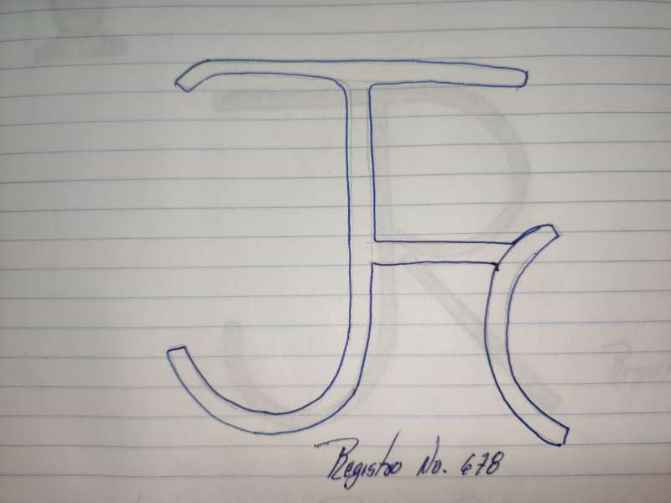 Registro No. 678